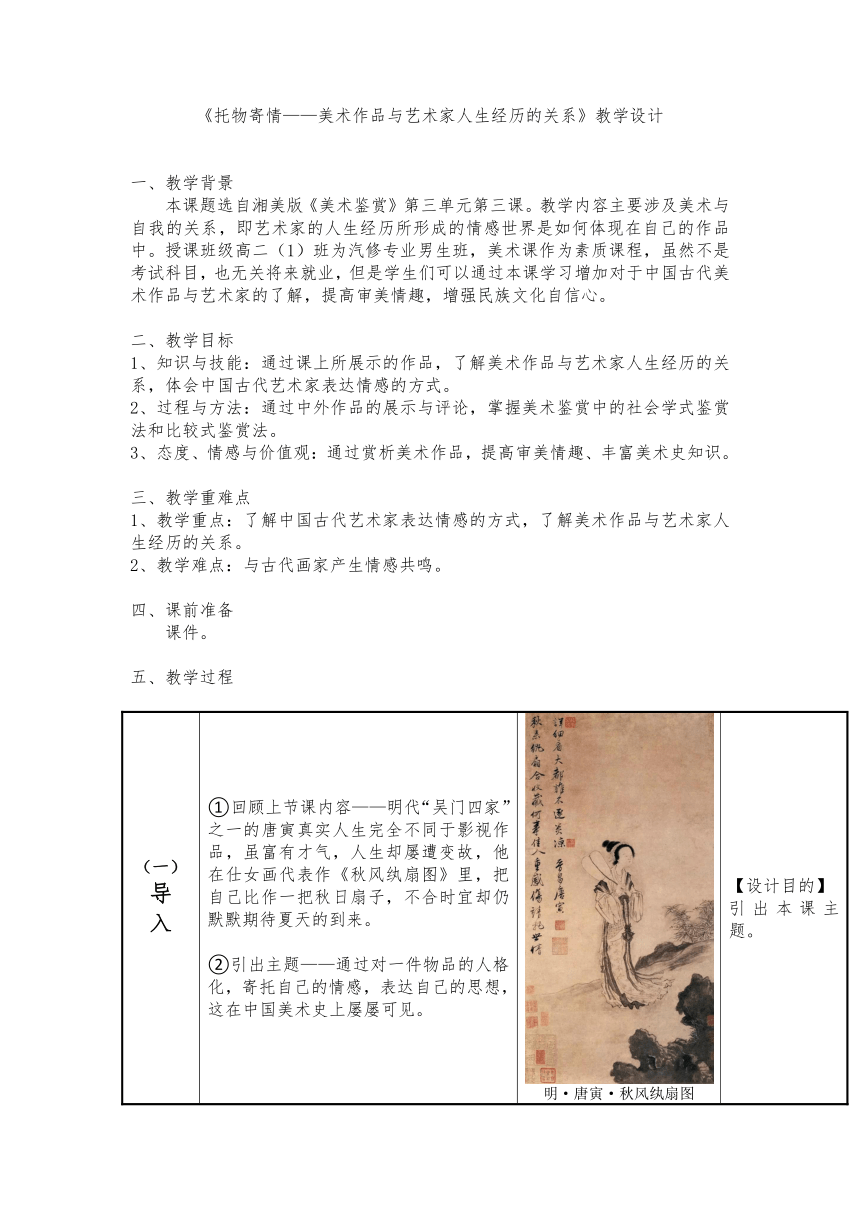 《托物寄情——美术作品与艺术家人生经历的关系》教学设计
一、教学背景
本课题选自湘美版《美术鉴赏》第三单元第三课。教学内容主要涉及美术与
自我的关系，即艺术家的人生经历所形成的情感世界是如何体现在自己的作品
中。授课班级高二（1）班为汽修专业男生班，美术课作为素质课程，虽然不是
考试科目，也无关将来就业，但是学生们可以通过本课学习增加对于中国古代美
术作品与艺术家的了解，提高审美情趣，增强民族文化自信心。
二、教学目标
1、知识与技能：通过课上所展示的作品，了解美术作品与艺术家人生经历的关
系，体会中国古代艺术家表达情感的方式。
2、过程与方法：通过中外作品的展示与评论，掌握美术鉴赏中的社会学式鉴赏
法和比较式鉴赏法。
3、态度、情感与价值观：通过赏析美术作品，提高审美情趣、丰富美术史知识。
三、教学重难点
1、教学重点：了解中国古代艺术家表达情感的方式，了解美术作品与艺术家人
生经历的关系。
2、教学难点：与古代画家产生情感共鸣。
四、课前准备
课件。
五、教学过程
（一）
导
入
①回顾上节课内容——明代“吴门四家”
之一的唐寅真实人生完全不同于影视作
品，虽富有才气，人生却屡遭变故，他
在仕女画代表作《秋风纨扇图》里，把
自己比作一把秋日扇子，不合时宜却仍
默默期待夏天的到来。
②引出主题——通过对一件物品的人格
化，寄托自己的情感，表达自己的思想，
这在中国美术史上屡屡可见。
秋来纨扇合收藏何事佳人重感伤请托世情
详细看大都谁不逐炎凉 晋昌唐寅
明·唐寅·秋风纨扇图
【设计目的】
引出本课主
题。